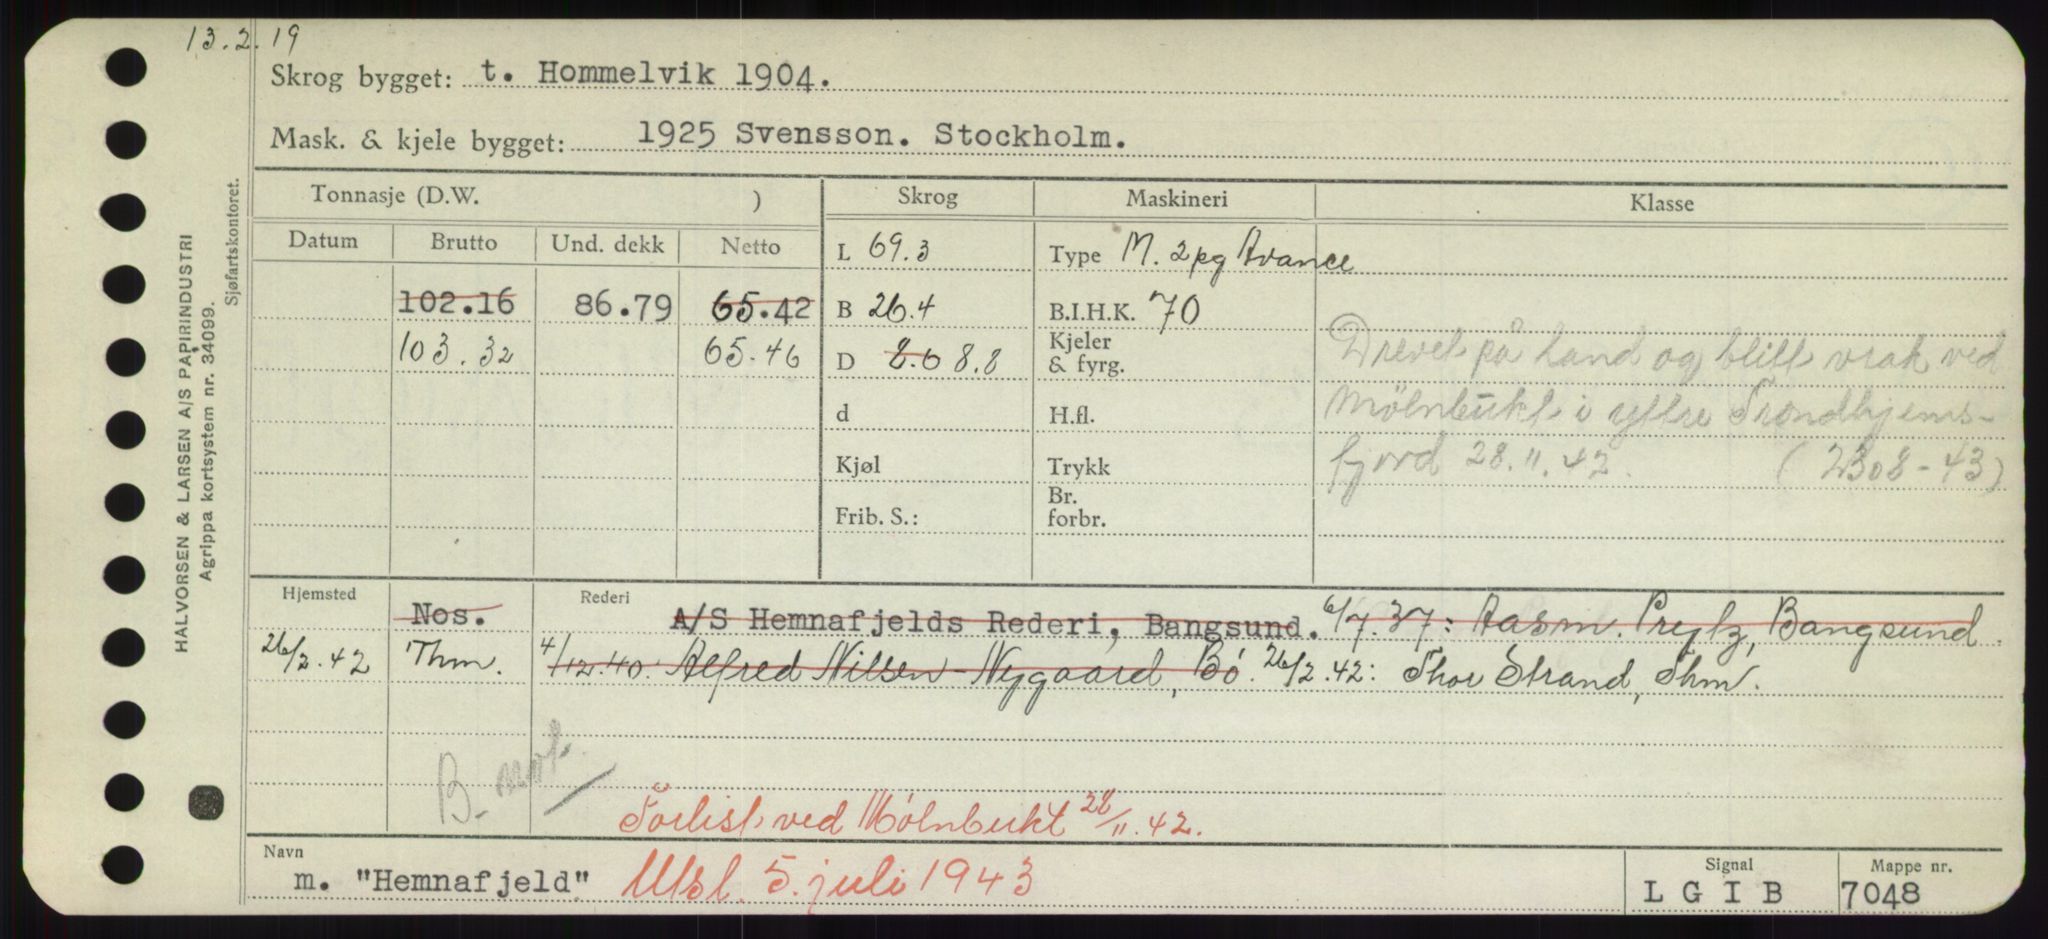 13.2.19
Skrog bygget: t. Hommelvik 1904.
Mask. & kjele bygget: 1925 Svensson. Stockholm.
Tonnasje (D.W. ) Skrog Maskineri Klasse
Datum Brutto Und. dekk Netto L 69.3 Type M. 2 pg Avance
102.16 86.79 65.42 B 26.4 B.I.H.K. 70
103.32 65.46 D 8.0 8.8 Kjeler & fyrg.
d H.fl.
Kjøl Trykk
Frib. S.: Br. forbr.
Drevet på land og blitt vrak ved
Mölnbukt i yttre Trondhjems-
fjord 28.11.42. (2308-43)
Hjemsted Nos. Rederi A/S Hemnafjelds Rederi, Bangsund. 6/7.37: Aasm. Bangsund
26/2.42 Thm. 4/12.40. Alfred Nilsen-Nygaard, Bö. 26/2.42: Thor Strand, Thm.
B.
Forlist ved Mölnbukt 28/11.42.
Navn m. "Hemnafjeld" Utsl. 5. juli 1943
Signal LGIB
Mappe nr. 7048
HALVORSEN & LARSEN A/S PAPIRINDUSTRI
Agrippa kortsystem nr. 34099.
Sjøfartskontoret.